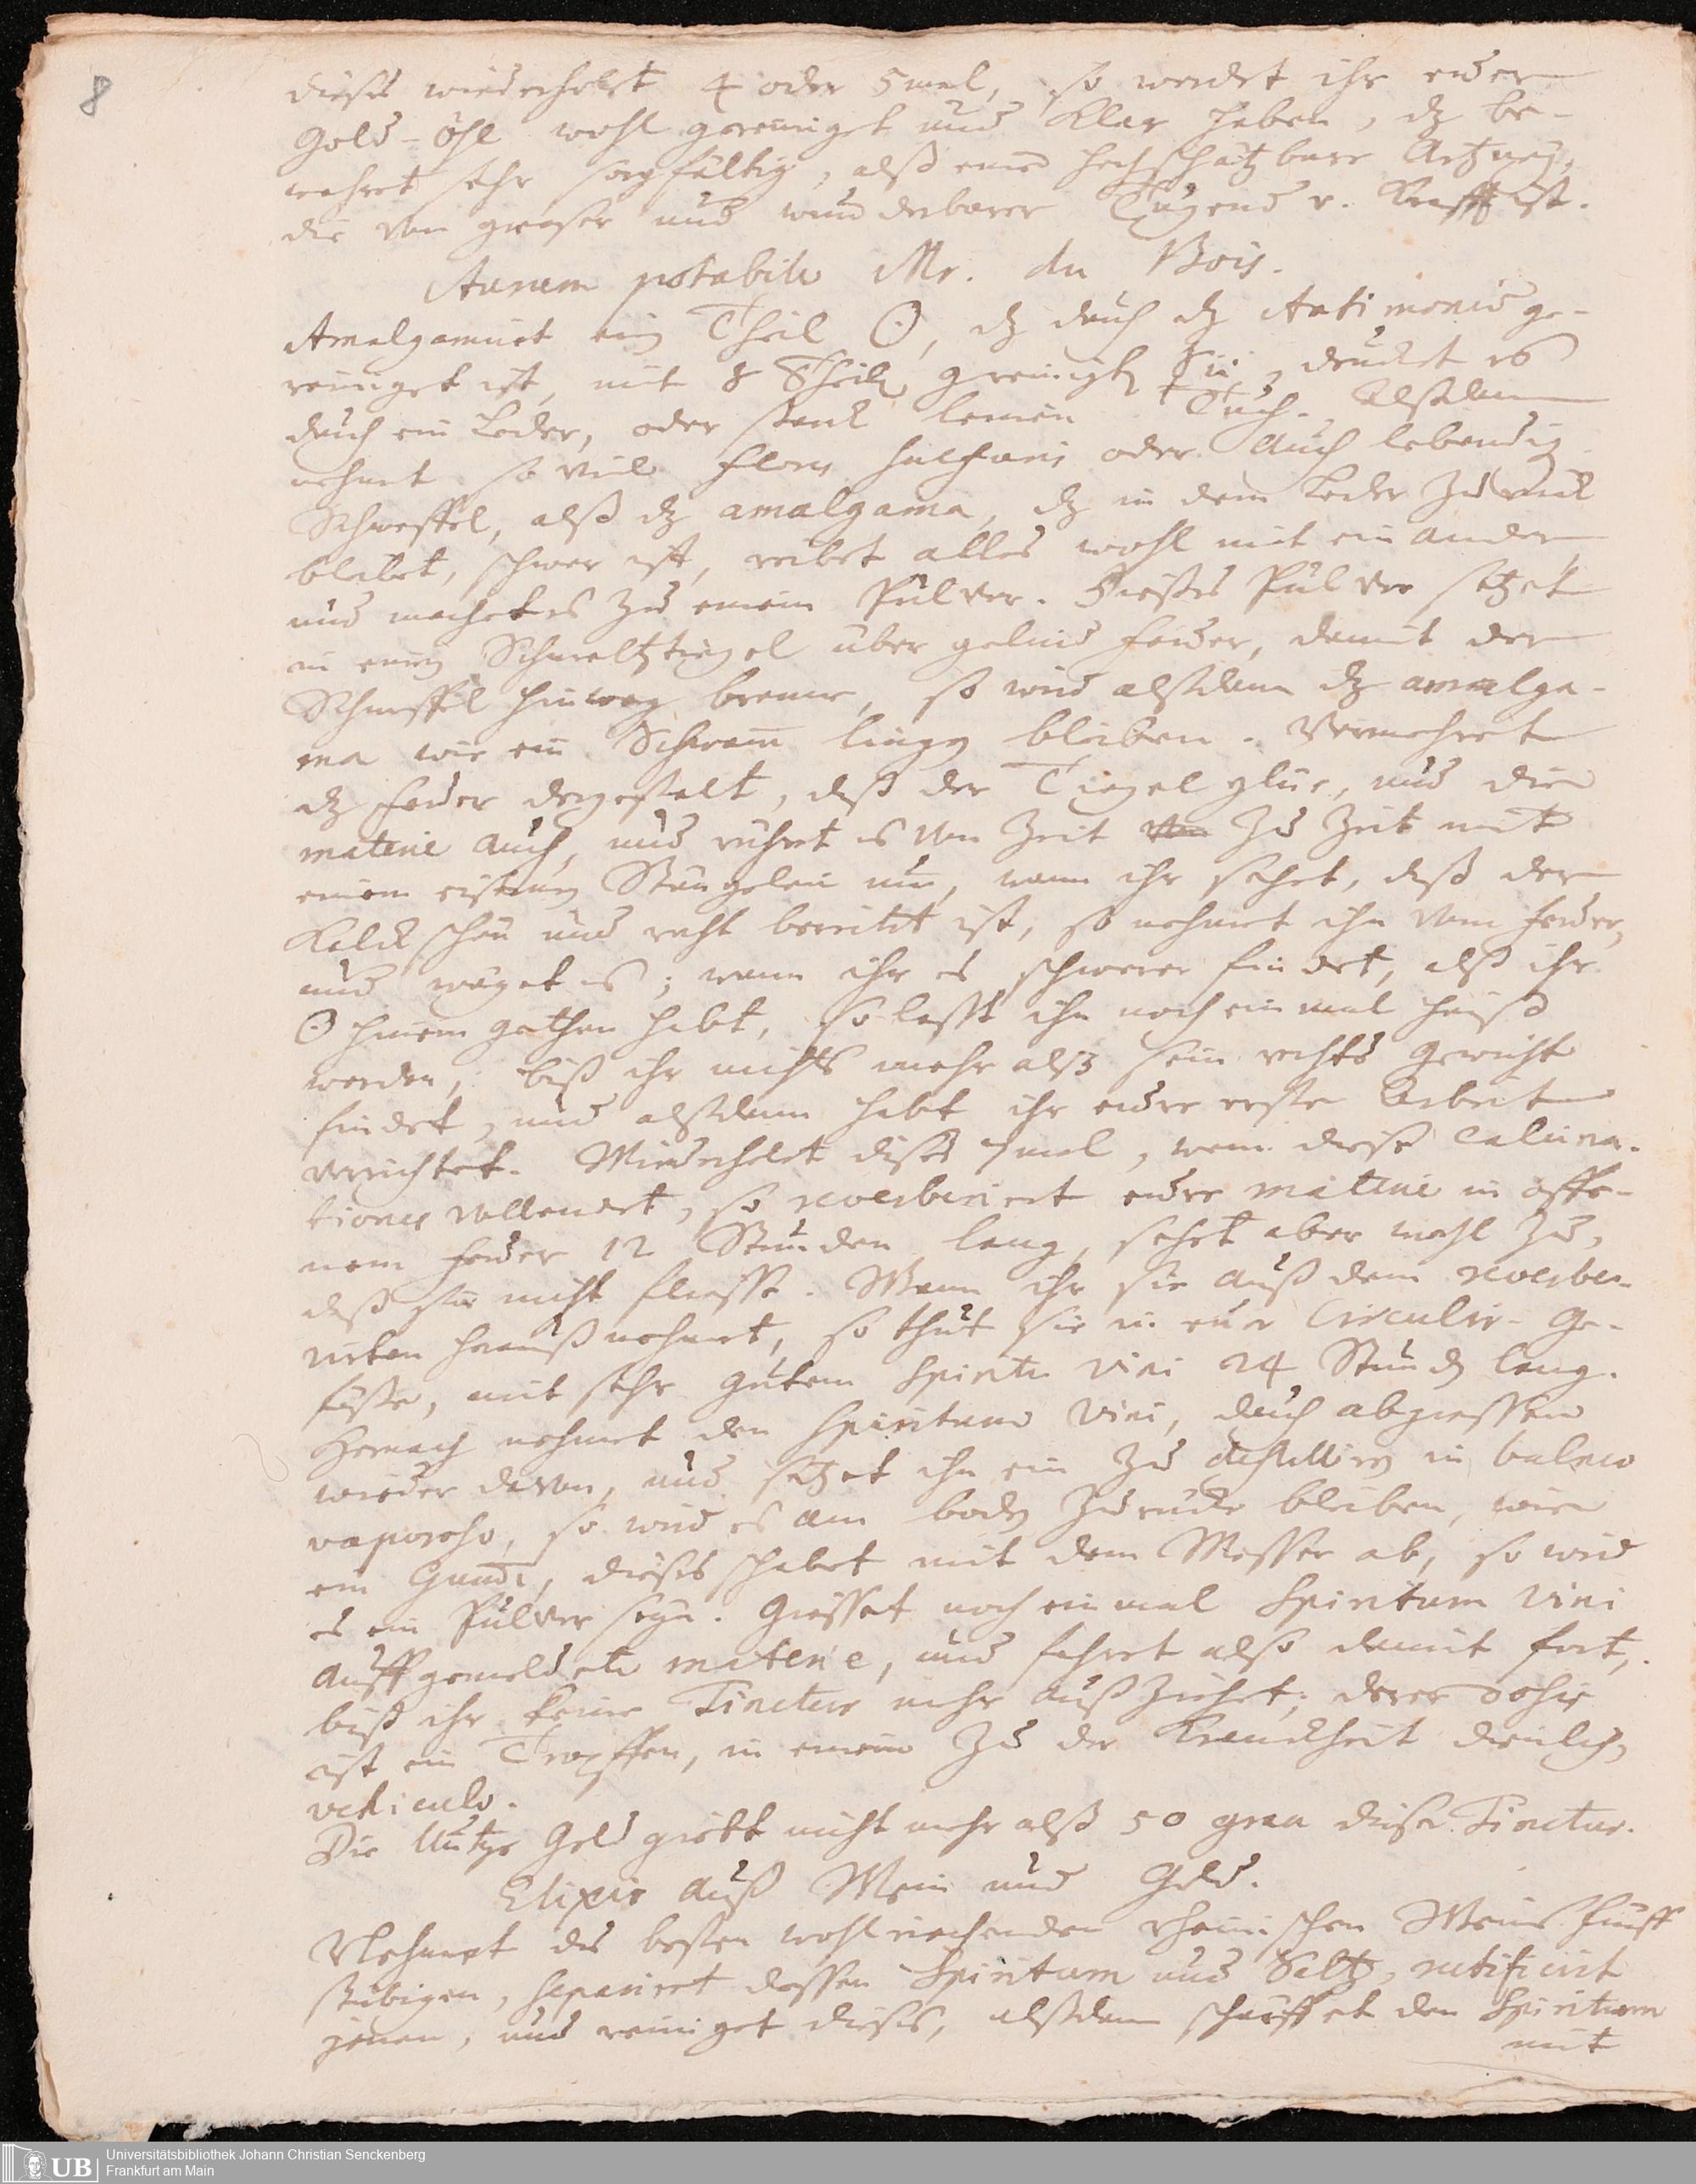 8
dießes wiederhohlet 4 oder 5 mal, so werdet ihr euer
Gold-öhl wohl gereiniget und klar haben, dz be-
wahret sehr sorgfältig, alß eine hochschätzbare Artzney,
die von groser und wunderbarer Tugend v. Krafft ist.
Aurum potabile Mr. du Bois.
Amalgamiret ein Theil ☉, dz durch dz Antimonium ge-
reiniget ist, mit 8 Theile gereinigten ☿ii, drucket es
durch ein Leder, oder starck leinen Tuch. Alßdann
nehmet so viel flores sulphuris oder auch lebendig
Schweffel, alß dz amalgama, dz in dem Leder zurück
bleibet, schwer ist, reibet alles wohl mit einander
und machet es zu einem Pulver. Dießes Pulver setzet
in einen Schmeltztiegel über gelind feuer, damit der
Schweffel hinweg brenne, so wird alßdann dz amalga-
ma wie ein Schwam liegen bleiben. Vermehret
dz feuer dergestalt, daß der Tiegel glüe, und die
materie auch, und rühret es von Zeit zu Zeit mit
einem eisernen Stängelein um, wann ihr sehet, daß der
Kalck schön und recht bereitet ist, so nehmet ihn vom feuer,
und wäget es; wann ihr es schwerer findet, alß ihr
☉ hinein gethan habt, so lasst ihn noch ein mal heiß
werden, biß ihr nichts mehr alß sein rechts Gewicht
findet, und alßdann habt ihr eure erste Arbeit
verrichtet. Wiederholet dißes 7 mal, wenn dieße calcina-
tiones vollendet, so reverberiert eure materie in offe-
nem feuer 12 Stunden lang, sehet aber wohl zu,
daß sie nicht fliesse. Wann ihr sie auß dem reverbe-
riren herauß nehmet, so thut sie in eine Circulir-Ge-
fäße, mit sehr gutem Spiritu Vini 24 Stunden lang.
Hernach nehmet den Spiritum Vini, durch abgiessen
wieder davon, und setzet ihn ein zu destilliren in balneo
vaporoso, so wird es am boden zurücke bleiben, wie
ein Gummi, dießes schabet mit dem Messer ab, so wird
es ein Pulver seyn. Giesset noch ein mal Spiritum Vini
auff gemeldete materie, und fahret also damit fort,
biß ihr keine Tinctur mehr außziehet; derer dosis
ist ein Tropffen, in einem zu der Kranckheit dienlichen
vehiculo.
Die Untze Gold giebt nicht mehr alß 50 gran dießer Tinctur.
Elixir auß Wein und Gold.
Nehmet des besten wohlriechenden rheinischen Weins fünff
stübigen, separiret dessen Spiritum und Saltz, rectificirt
jenen, und reiniget dießes, alßdann schärffet den Spiritum
mit
UB Universitätsbibliothek Johann Christian Senckenberg
Frankfurt am Main